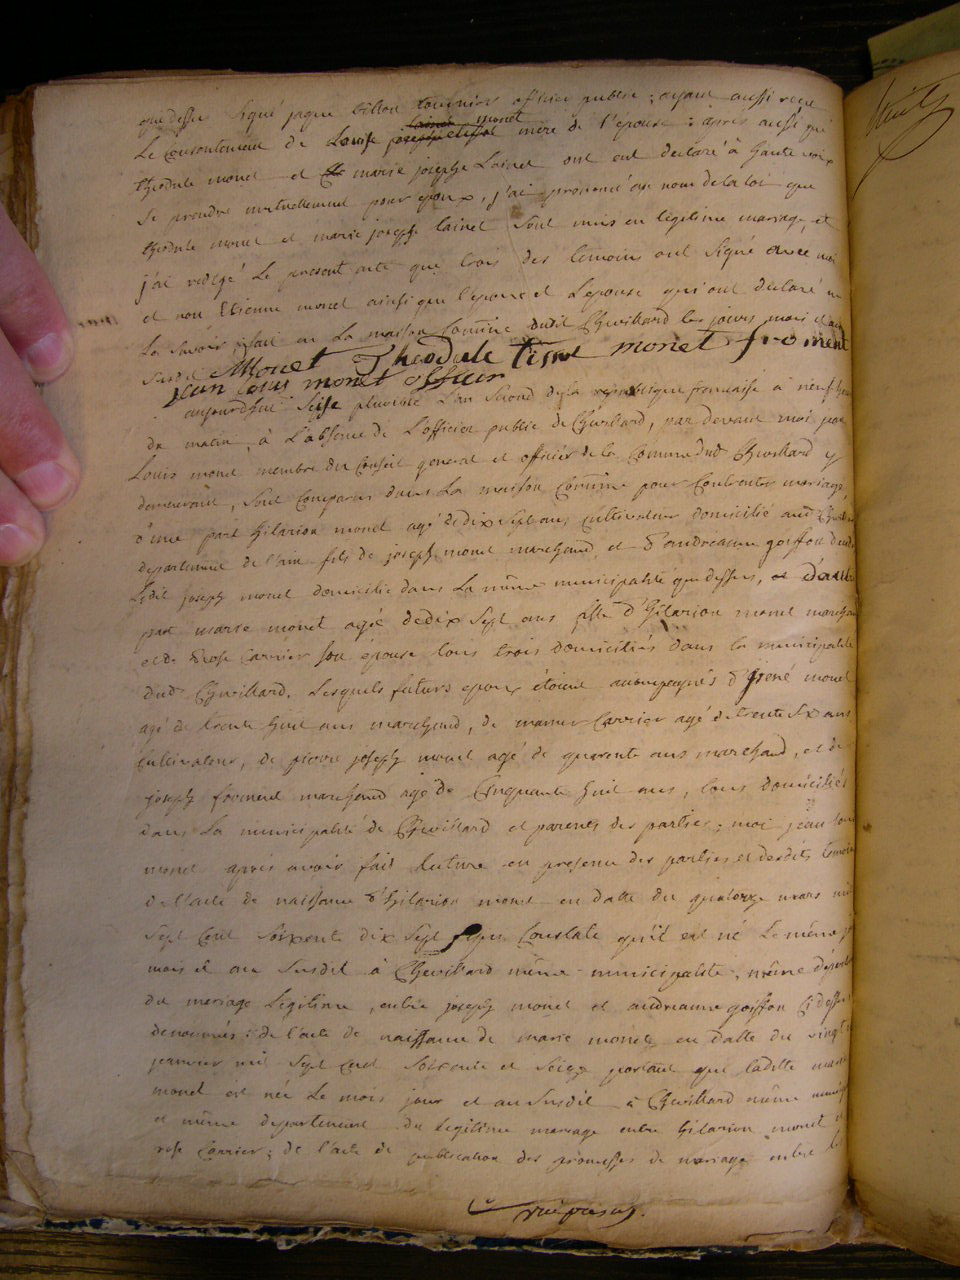 que dessus signé jaque billon tournier officier public ; ayant aussi reçu
Le consentement de Louise josephe lainel monet mere de l'epouse : apres aussi que
theodule monet et marie josephe Lainel ont eut declaré à haute voix
se prendre mutuellement pour epoux, j'ai prononcé au nom de la loi que
theodule monet et marie joseph lainel sont unis en légitime mariage, et
j'ai redigé le present acte que trois des temoins ont signé avec moi
et non Etienne monet ainsi que l'epoux et Lepouse qui ont declaré ne
le savoir, fait en La maison Commune dudit Chevillard les jours mois et an
susdit Monet Theodule monet froment
jean louis monet officier
aujourdhui seise pluviose L'an second de la republique francaise à neuf heures
du matin, à L'absence de L'officier public de Chevillard, par devant moi jean
Louis monet membre du Conseil general et officier de la Commune dud Chevillard y
demeurant, sont comparus dans La maison Commune pour Contracter mariage,
d'une part hilarion monet agé de dix sept ans cultivateur domicilié aud Chevillard
departement de l'ain fils de joseph monet marchand, et d'andreanne goiffon
Ledit joseph monet domicilié dans La même municipalité que dessus, et d'autre
part marie monet agé de dix sept ans fille d'hilarion monet marchand
et de rose Carrier son epouse tous trois domiciliés dans la municipalité
dud Chevillard. Lesquels futurs epoux étoient accompagnés d' monet
agé de trente huit ans marchand, de Carrier agé de trente six ans
Cultivateur, de pierre joseph monet agé de quarente ans marchand, et de
joseph froment marchand agé de Cinquante huit ans, tous domiciliés
dans La municipalité de Chevillard et parents des parties ; moi jean louis
monet après avoir fait lecture en presence des parties et desdits temoins
de l'acte de naissance d'hilarion monet en datte du quatorze mars mil
sept cent soixente dix sept qui Constate qu'il est né Le même jour
mois et an susdit à Chevillard même municipalité, même departement
du mariage Legitime, entre joseph monet et andreanne goiffon Ci dessus
denommés : de l'acte de naissance de marie monet en datte du vingt
janvier mil sept cent soixente et seize portant que ladite marie
monet est née Le mois jour et an susdit à Chevillard même municipalité
et même departement du legitime mariage entre hilarion monet et
rose Carrier ; de l'acte de publication des promesses de mariage entre les